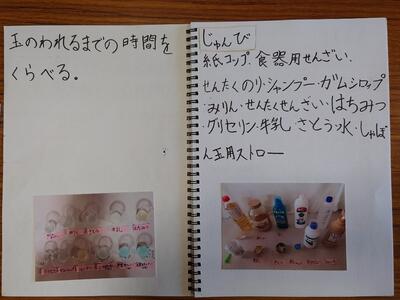 玉のわれるまでの時間を
くらべる。
じゅんび
紙コップ、食器用せんざい、
せんたくのり・シャンプー・ガムシロップ
・みりん・せんたくせんざい・はちみつ
・グリセリン・牛乳・さとう水・しゃぼ
ん玉用ストロー